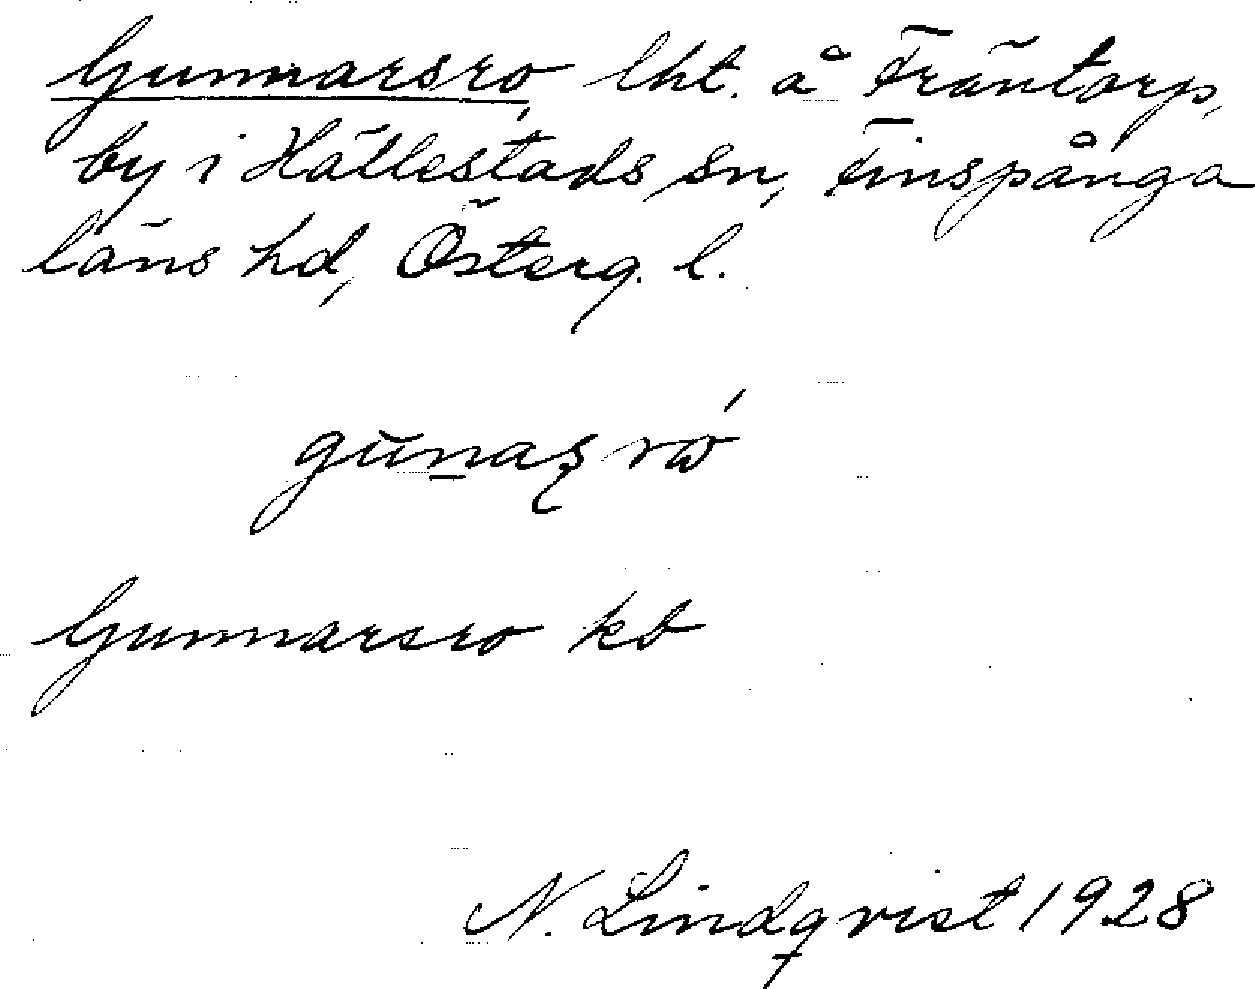 Gunnarsro, lht. å Fräntorp,
by i Hällestads sn, Finspånga
läns hd, Österg. l.
gunaş rώ
Gunnarsro kb
N. Lindqvist 1928